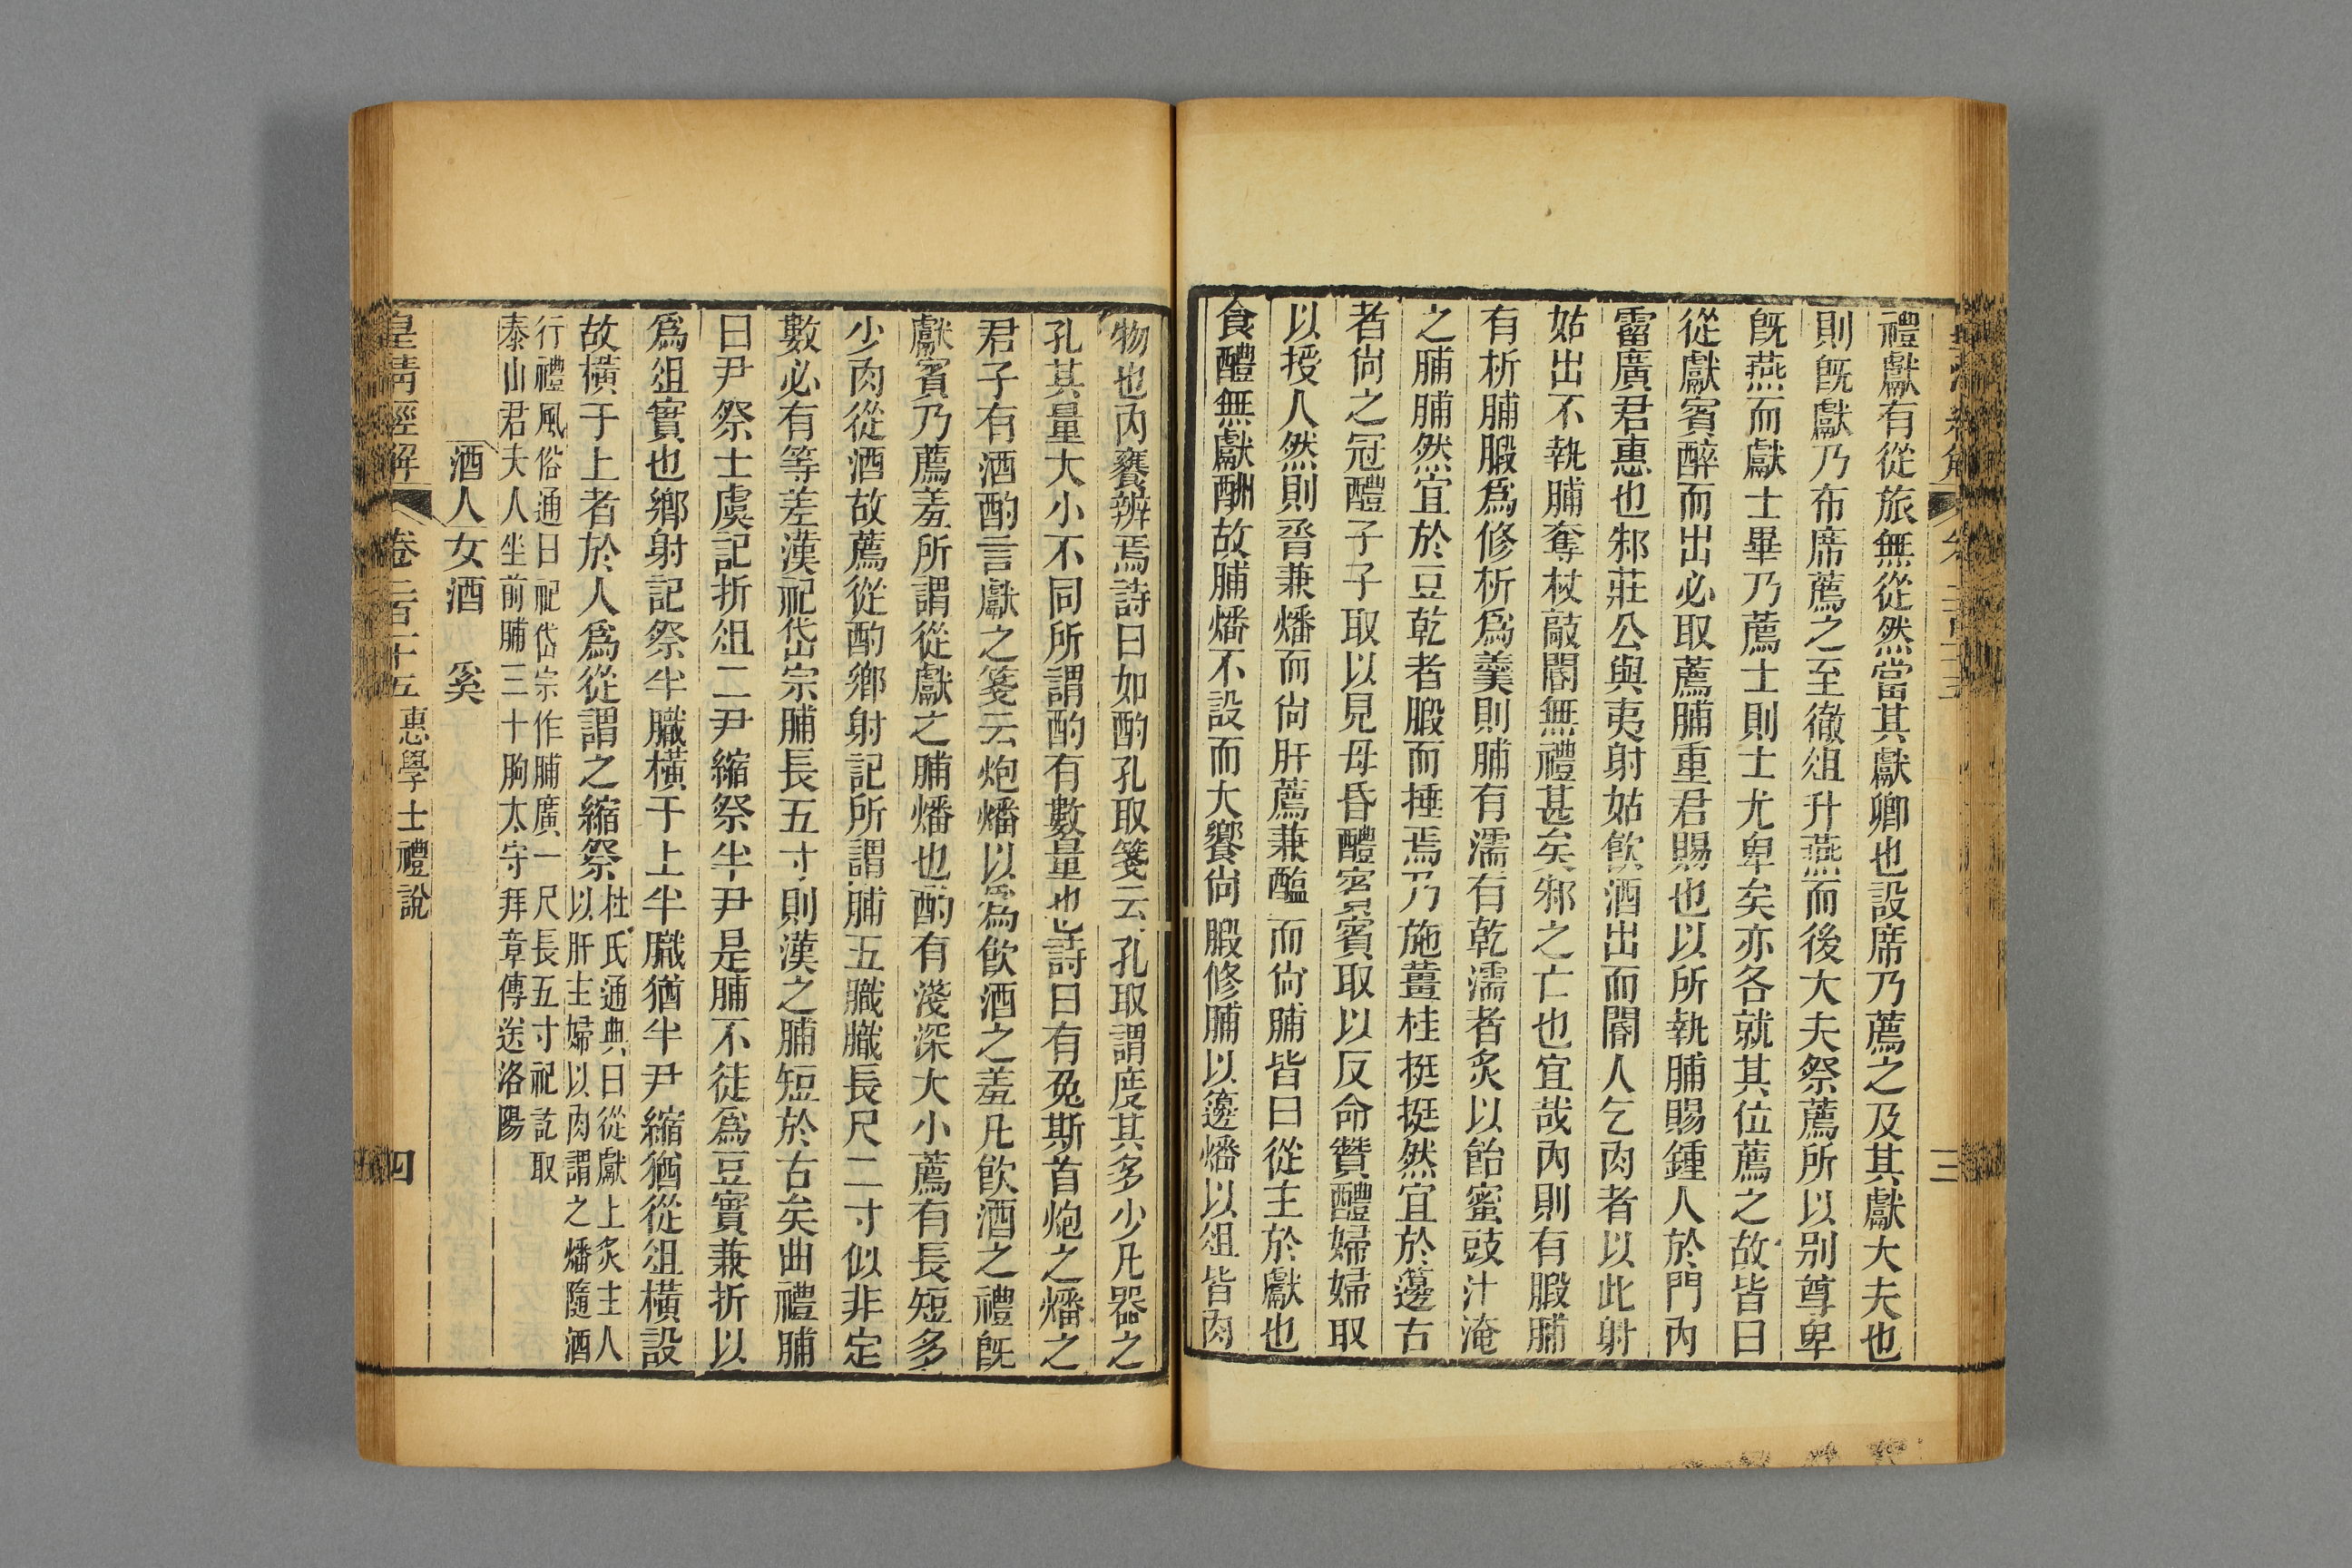 禮獻有從旅無從然當其獻卿也設席乃薦之及其獻大夫也
則既獻乃布席薦之至徹俎升燕而後大夫祭薦所以別尊卑
既燕而獻士畢乃薦士則士尤卑矣亦各就其位薦之故皆曰
從獻賓醉而出必取薦脯重君賜也以所執脯賜鍾人於門內
霤廣君惠也邾莊公與夷射姑飮酒出而閽人乞肉者以此射
姑出不執脯奪杖敲閽無禮甚矣邾之亡也宜哉內則有腶脯
有析脯腶爲修析爲羹則脯有濡有乾濡者炙以飴蜜豉汁淹
之脯脯然宜於豆乾者腶而捶焉乃施薑桂挺挺然宜於籩古
者尙之冠醴子子取以見母昏醴賓賓取以反命贊醴婦婦取
以授人然則脀兼燔而尙肝薦兼醢而尙脯皆曰從主於獻也
食醴無獻酬故脯燔不設而大饗尙腶修脯以籩燔以俎皆肉
三
物也內饔辨焉詩曰如酌孔取箋云孔取謂度其多少凡器之
孔其量大小不同所謂酌有數量也詩曰有兔斯首炮之燔之
君子有酒酌言獻之箋云炮燔以爲飮酒之羞凡飮酒之禮旣
獻賓乃薦羞所謂從獻之脯燔也酌有淺深大小薦有長短多
少肉從酒故薦從酌鄉射記所謂脯五膱膱長尺二寸似非定
數必有等差漢祀岱宗脯長五寸則漢之脯短於古矣曲禮脯
曰尹祭士虞記折俎二尹縮祭半尹是脯不徒爲豆實兼折以
爲俎實也鄉射記祭半膱橫于上半膱猶半尹縮猶從俎橫設
故橫于上者於人爲從謂之縮祭杜氏通典曰從獻上炙主人
以肝主婦以肉謂之燔隨酒
行禮風俗通曰祀岱宗作脯廣一尺長五寸祀訖取
泰山君夫人坐前脯三十朐太守拜章傳送洛陽
酒人女酒　奚
皇清經解　卷二百十五惠學士禮說　四